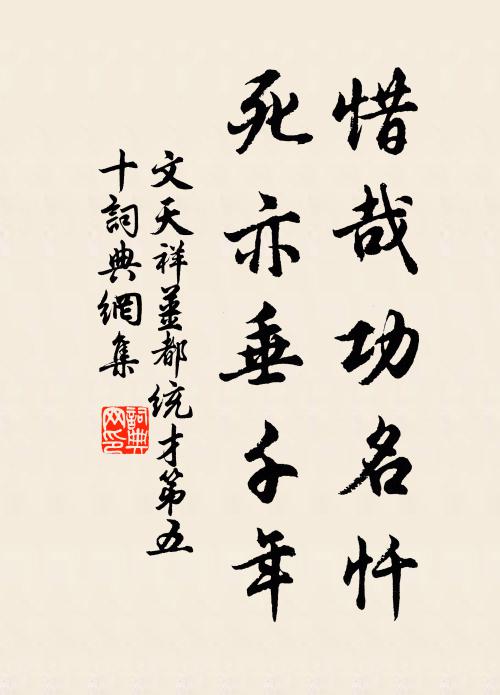 惜哉功名忤
死亦垂千年
文天祥薑都統才第五
十詞典網集
詞典
网印